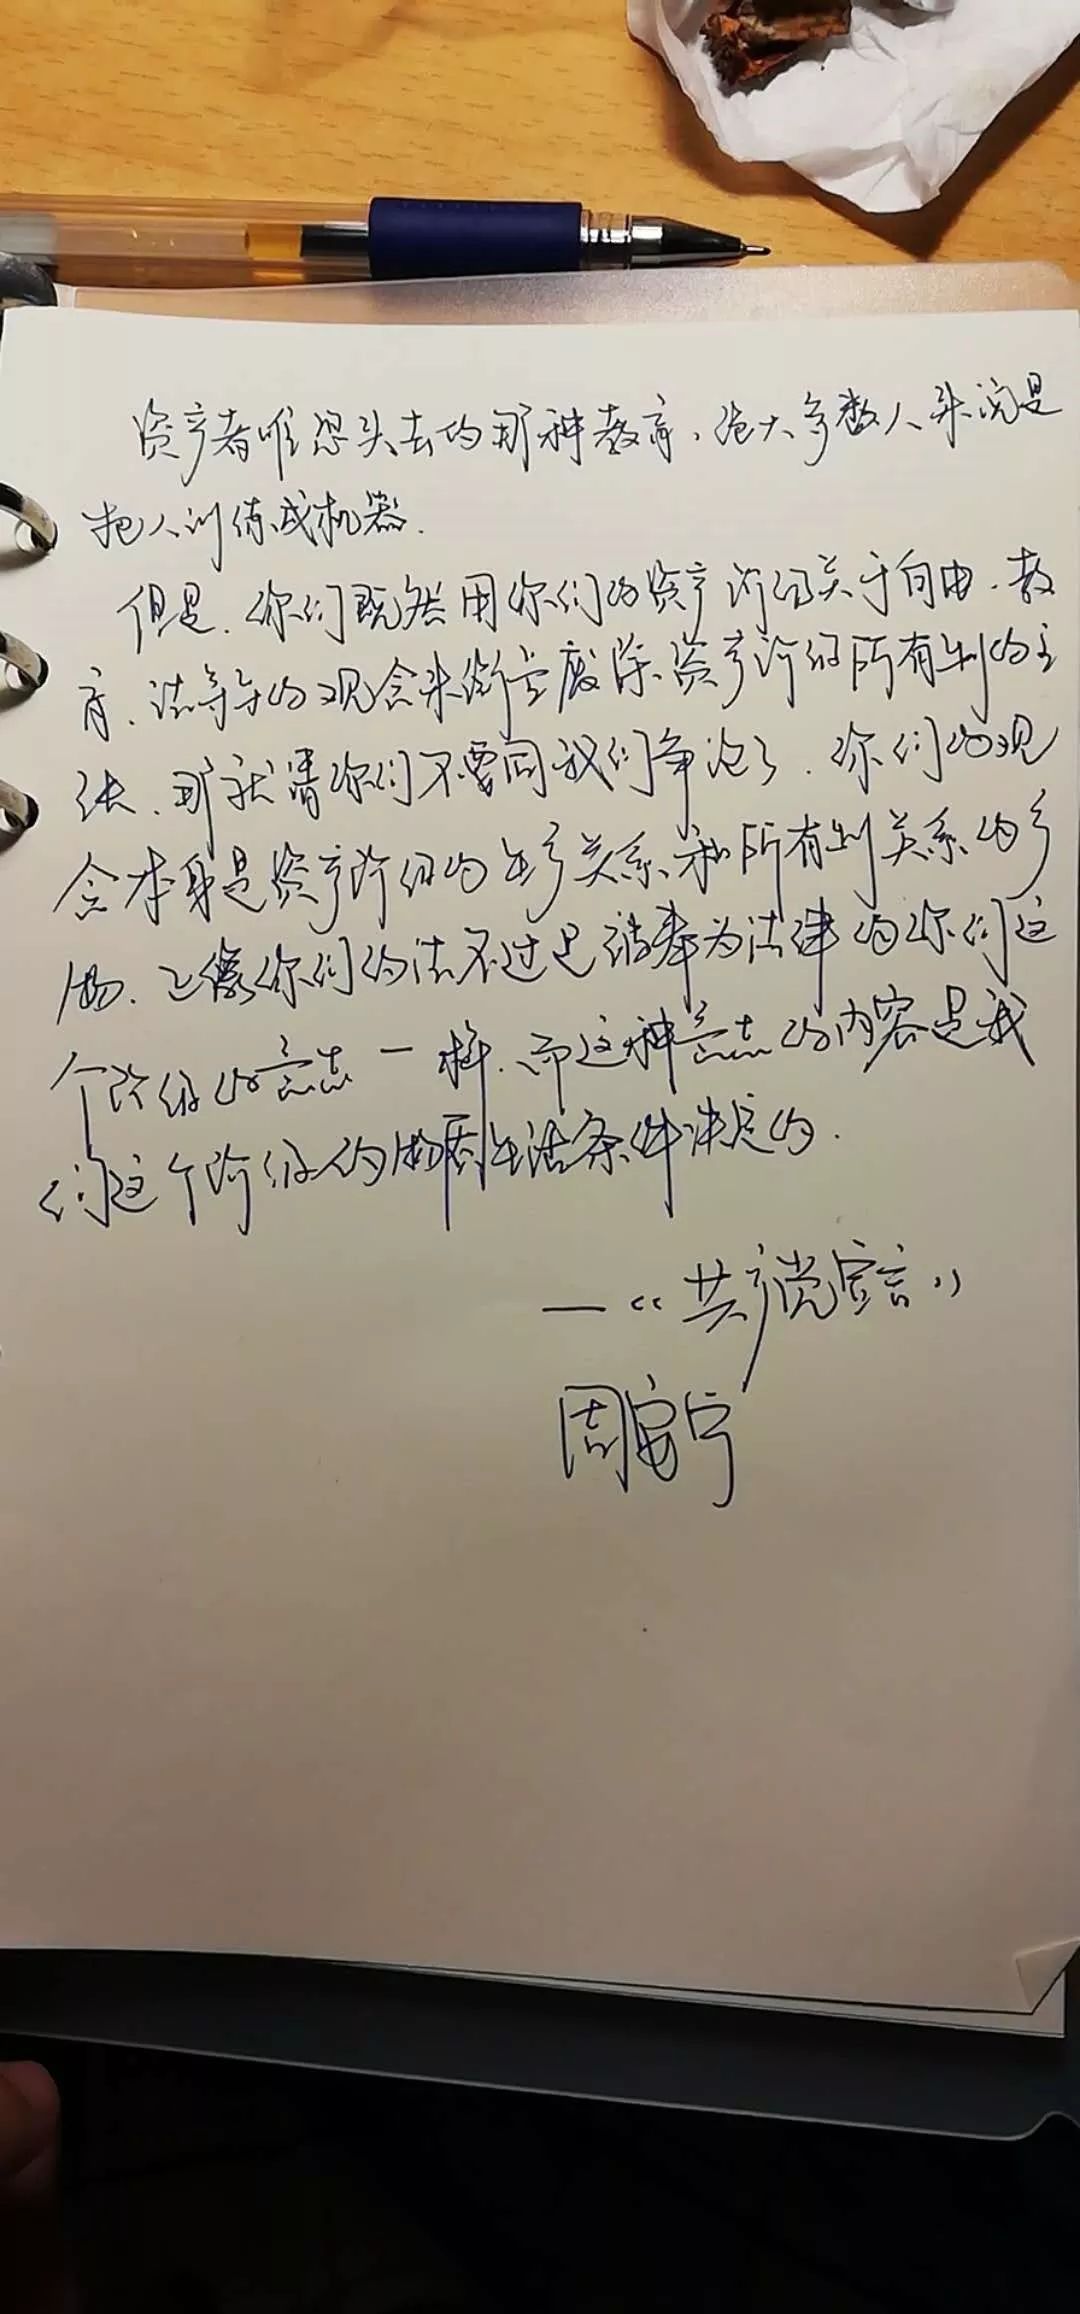 资产者唯恐失去的那种教育,绝大多数人来说是
把人训练成机器.
但是.你们既然用你们的资产阶级关于自由.教
育.法等等的观念来衡量废除资产阶级所有制的主
张.那就请你们不要同我们争论了.你们的观
念本身是资产阶级的生产关系和所有制关系的产
物.正像你们的法不过是被奉为法律的你们这
个阶级的意志一样.而这种意志的内容是我
们这个阶级的物质生活条件决定的.
—《共产党宣言》
周安宁